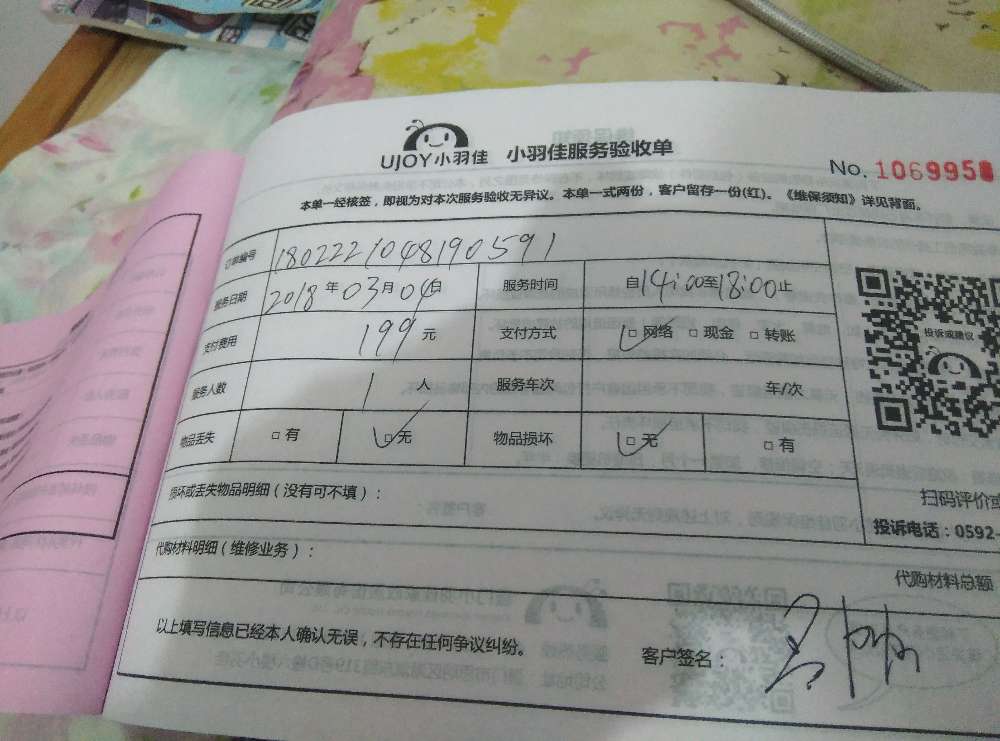 UJOY小羽佳 小羽佳服务验收单
No. 1069958
本单一经核签，即视为对本次服务验收无异议。本单一式两份，客户留存一份(红)。《维保须知》详见背面。
订单编号 1802221048190591
服务日期 2018年03月04日 服务时间 自14:00至18:00止
支付费用 199元 支付方式 □网络 □现金 □转账
服务人数 1人 服务车次 车/次
物品丢失 □有 □无 物品损坏 □无 □有
投诉或建议
损坏或丢失物品明细（没有可不填）：
扫码评价或
投诉电话：0592-
代购材料明细（维修业务）：
代购材料总额
以上填写信息已经本人确认无误，不存在任何争议纠纷。
客户签名：